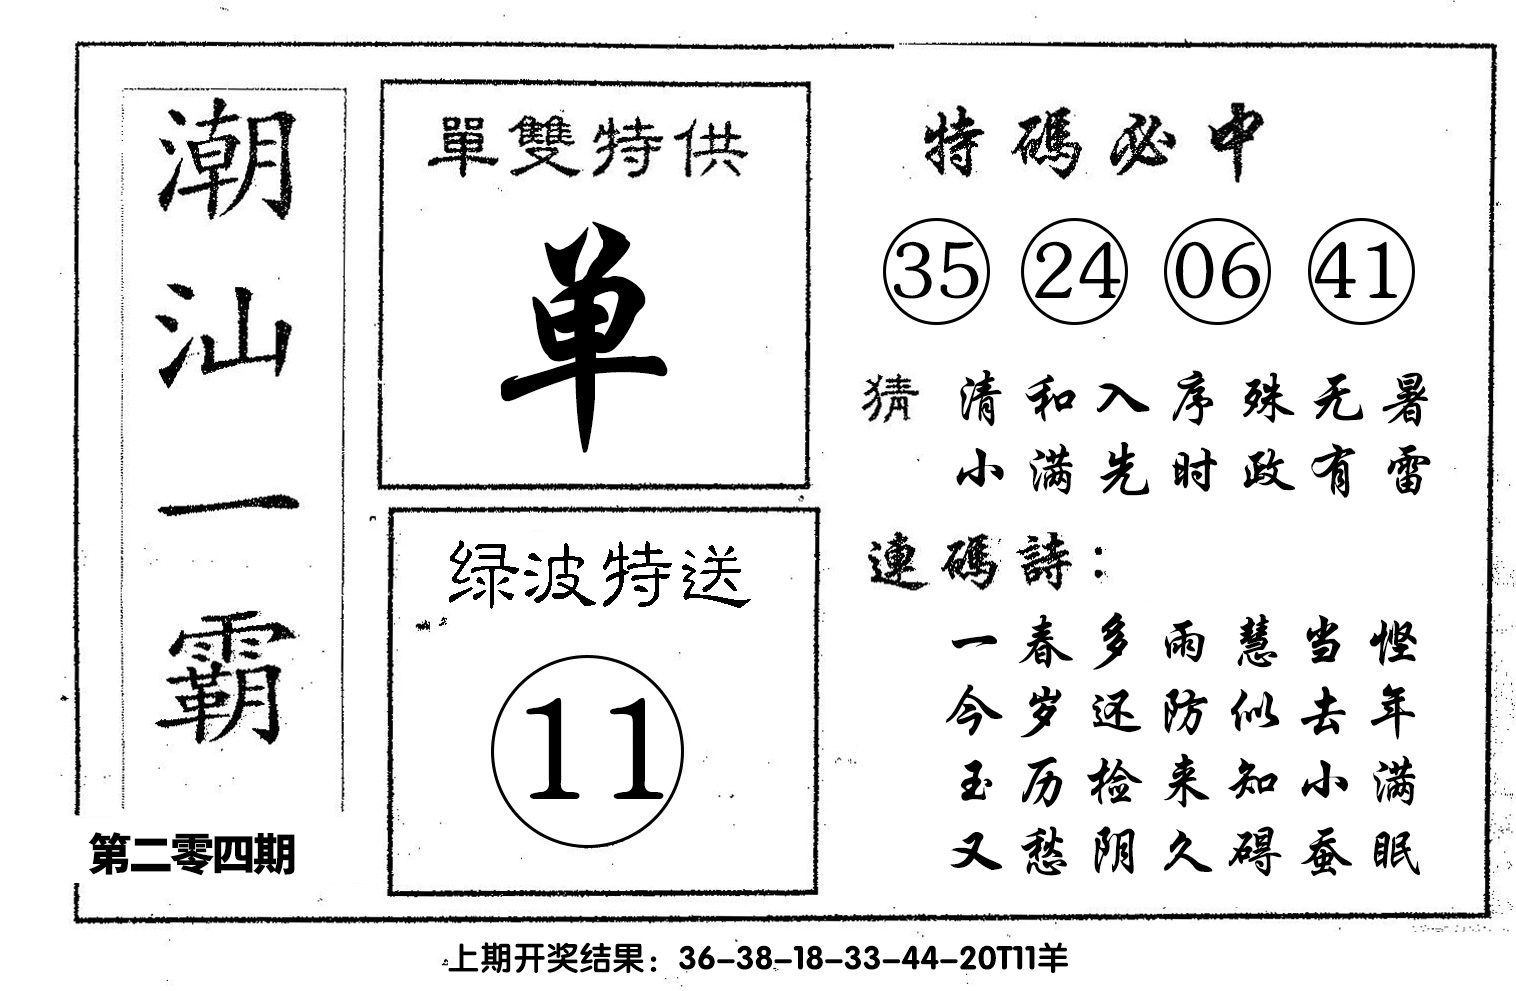 潮汕一霸
第二零四期
單雙特供
单
绿波特送
11
特碼必中
35 24 06 41
猜 清和入序殊无暑
小满先时政有雷
連碼詩：
一春多雨慧当悭
今岁还防似去年
玉历检来知小满
又愁阴久碍蚕眠
上期开奖结果：36-38-18-33-44-20T11羊